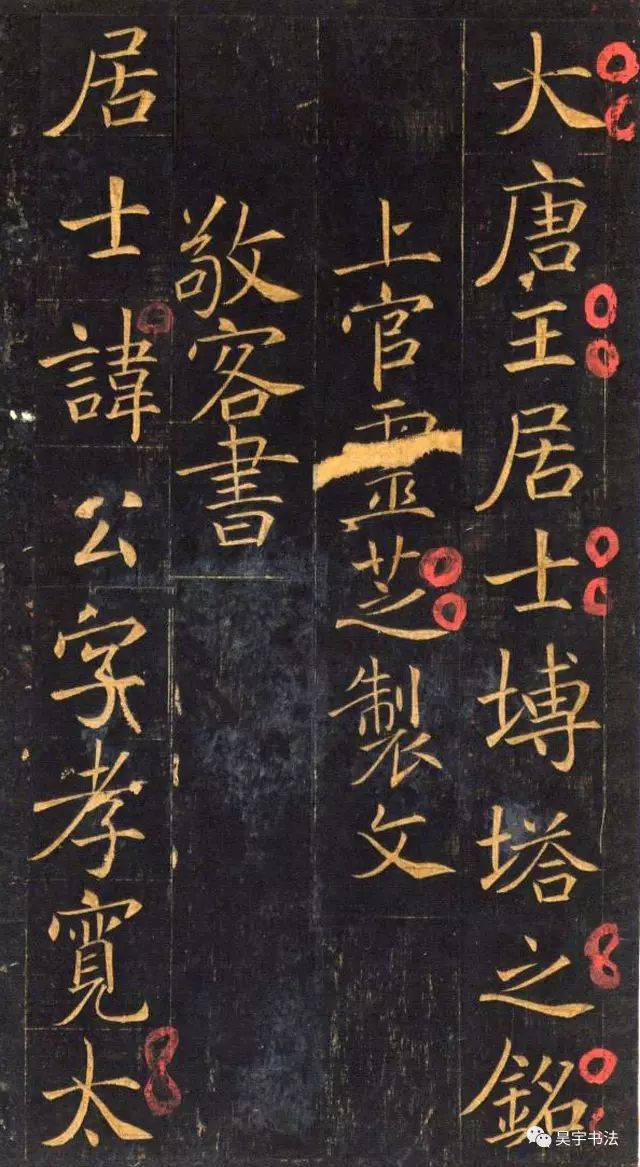 大唐王居士塼塔之銘
上官靈芝製文
敬客書
居士諱公字孝寬太
昊宇书法